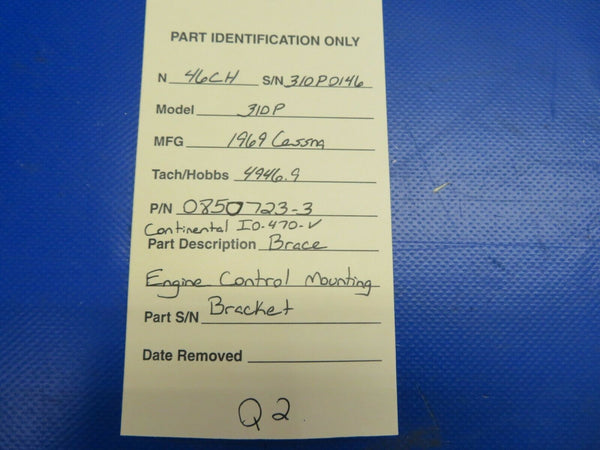 PART IDENTIFICATION ONLY
N 46CH S/N 310P0146
Model 310P
MFG 1969 Cessna
Tach/Hobbs 4946.9
P/N 0850723-3
Continental IO-470-V
Part Description Brace
Engine Control Mounting
Part S/N Bracket
Date Removed
Q2